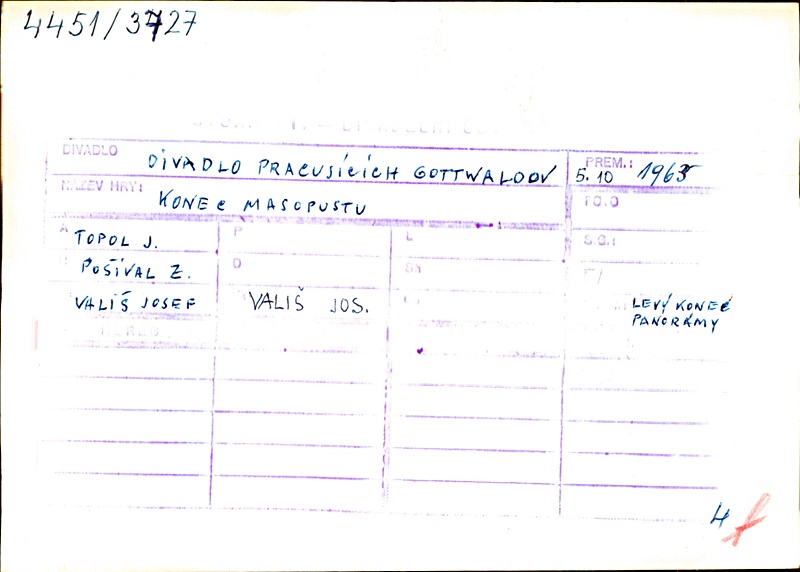 4451/3727
DIVADLO DIVADLO PRACUJÍCÍCH GOTTWALDOV PREM.: 5.10 1963
NÁZEV HRY: KONEC MASOPUSTU
A TOPOL J. P L S.G.:
POŠÍVAL Z. D
VALIŠ JOSEF VALIŠ JOS. LEVÝ KONEC
PANORÁMY
4